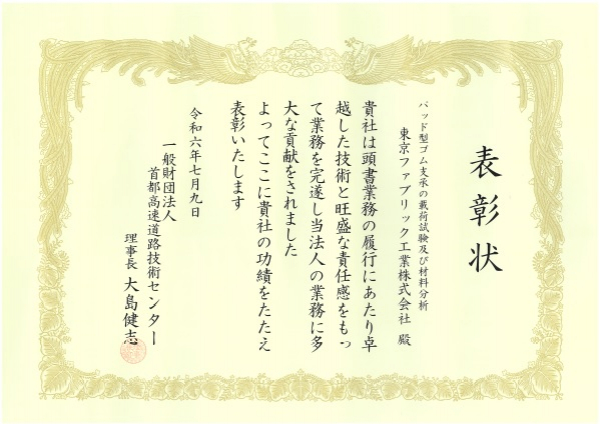 表彰状
パッド型ゴム支承の載荷試験及び材料分析
東京ファブリック工業株式会社 殿
貴社は頭書業務の履行にあたり卓
越した技術と旺盛な責任感をもっ
て業務を完遂し当法人の業務に多
大な貢献をされました
よってここに貴社の功績をたたえ
表彰いたします
令和六年七月九日
一般財団法人
首都高速道路技術センター
理事長 大島健志